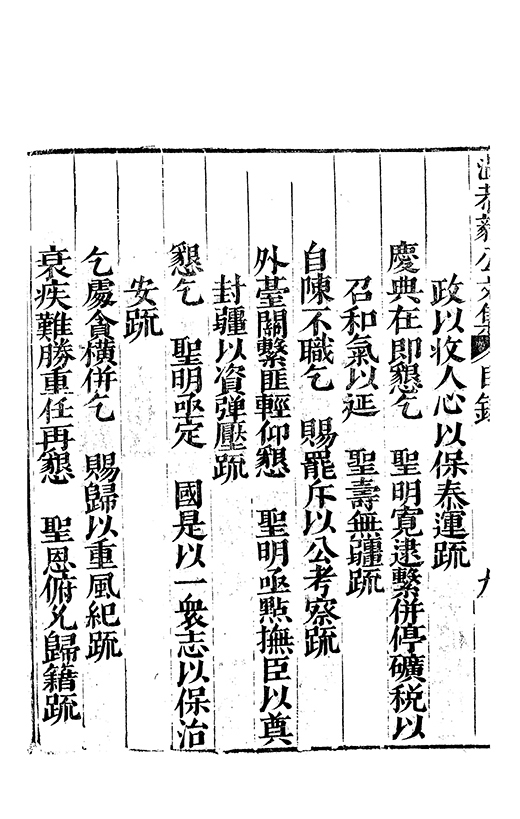 公文集 目錄 九
政以收人心以保泰運疏
慶典在即懇乞 聖明寛逮繫併停礦税以
召和氣以延 聖壽無疆疏
自陳不職乞 賜罷斥以公考察疏
外臺關繫匪輕仰懇 聖明亟㸃撫臣以奠
封疆以資弹壓疏
懇乞 聖明亟定 國是以一衆志以保治
安疏
乞處貪橫併乞 賜歸以重風紀疏
衰疾難勝重任再懇 聖恩俯允歸籍疏